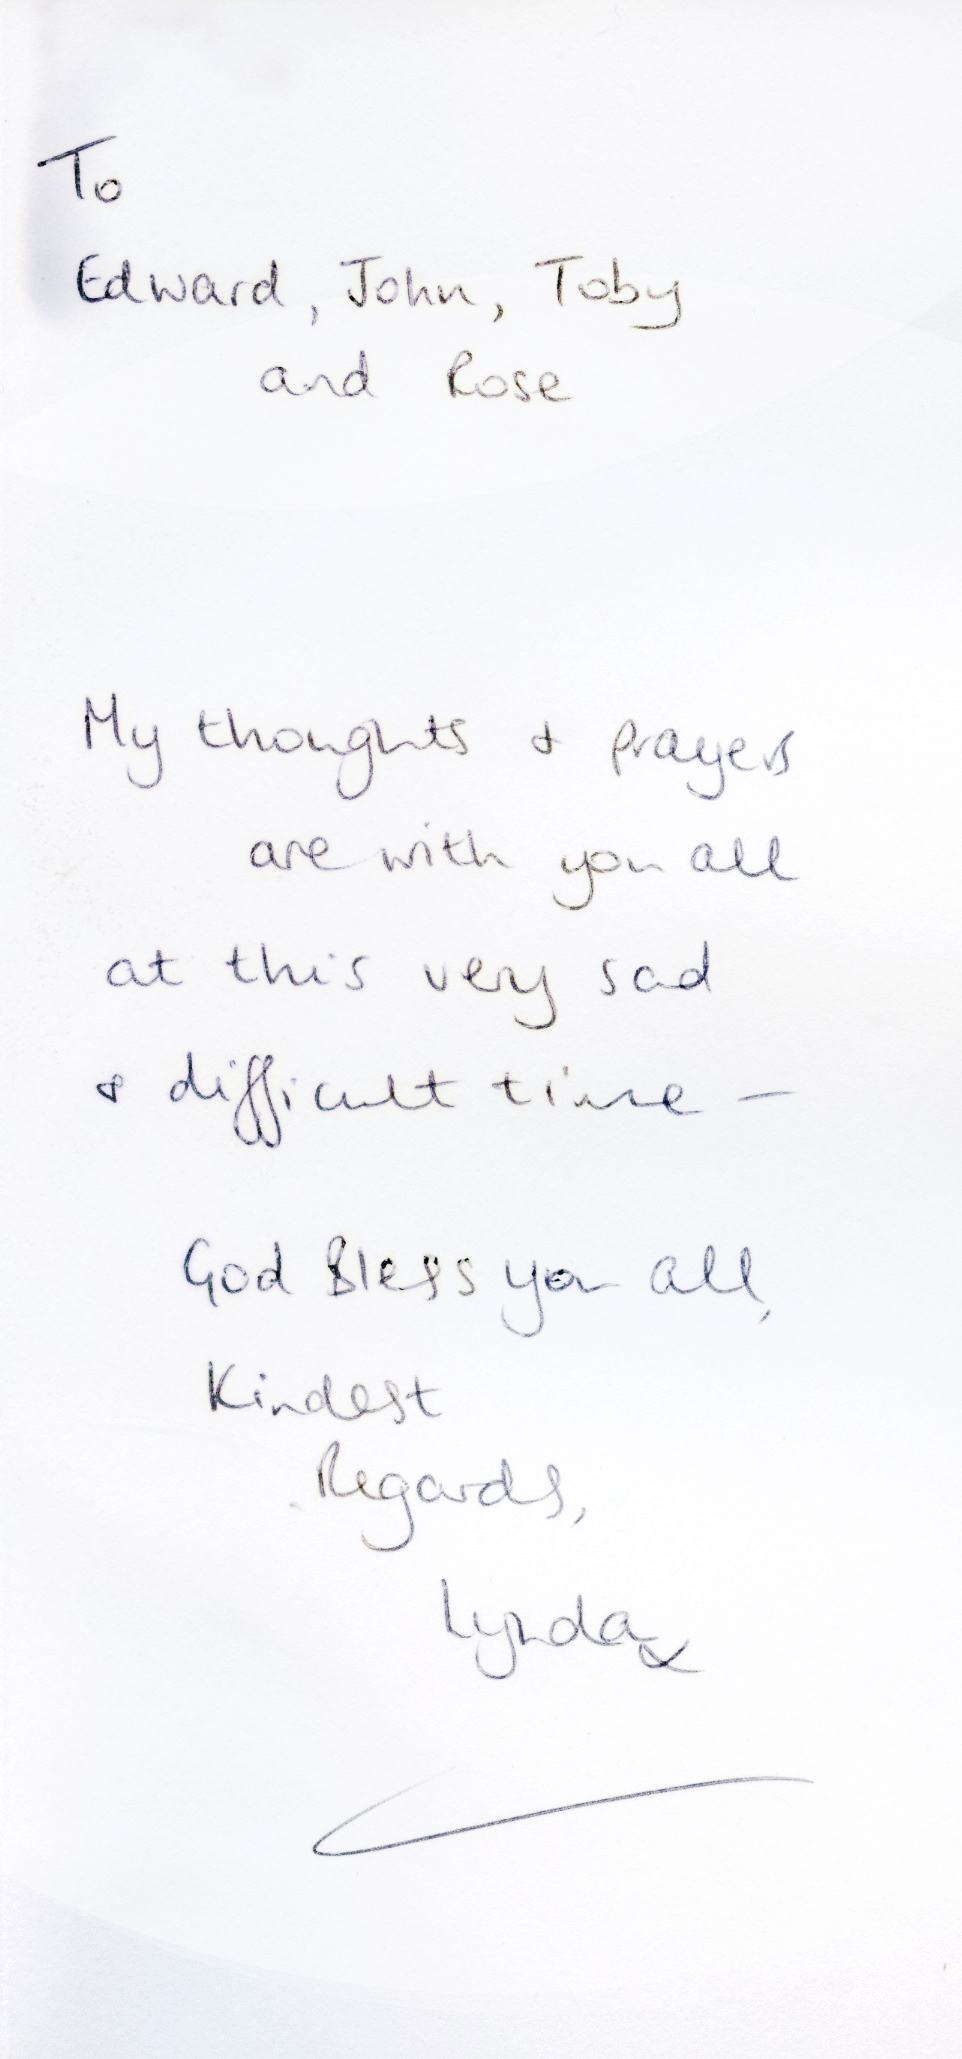 To
Edward, John, Toby
and Rose
My thoughts & prayers
are with you all
at this very sad
& difficult time –
God Bless you all,
Kindest
Regards,
Lynda x